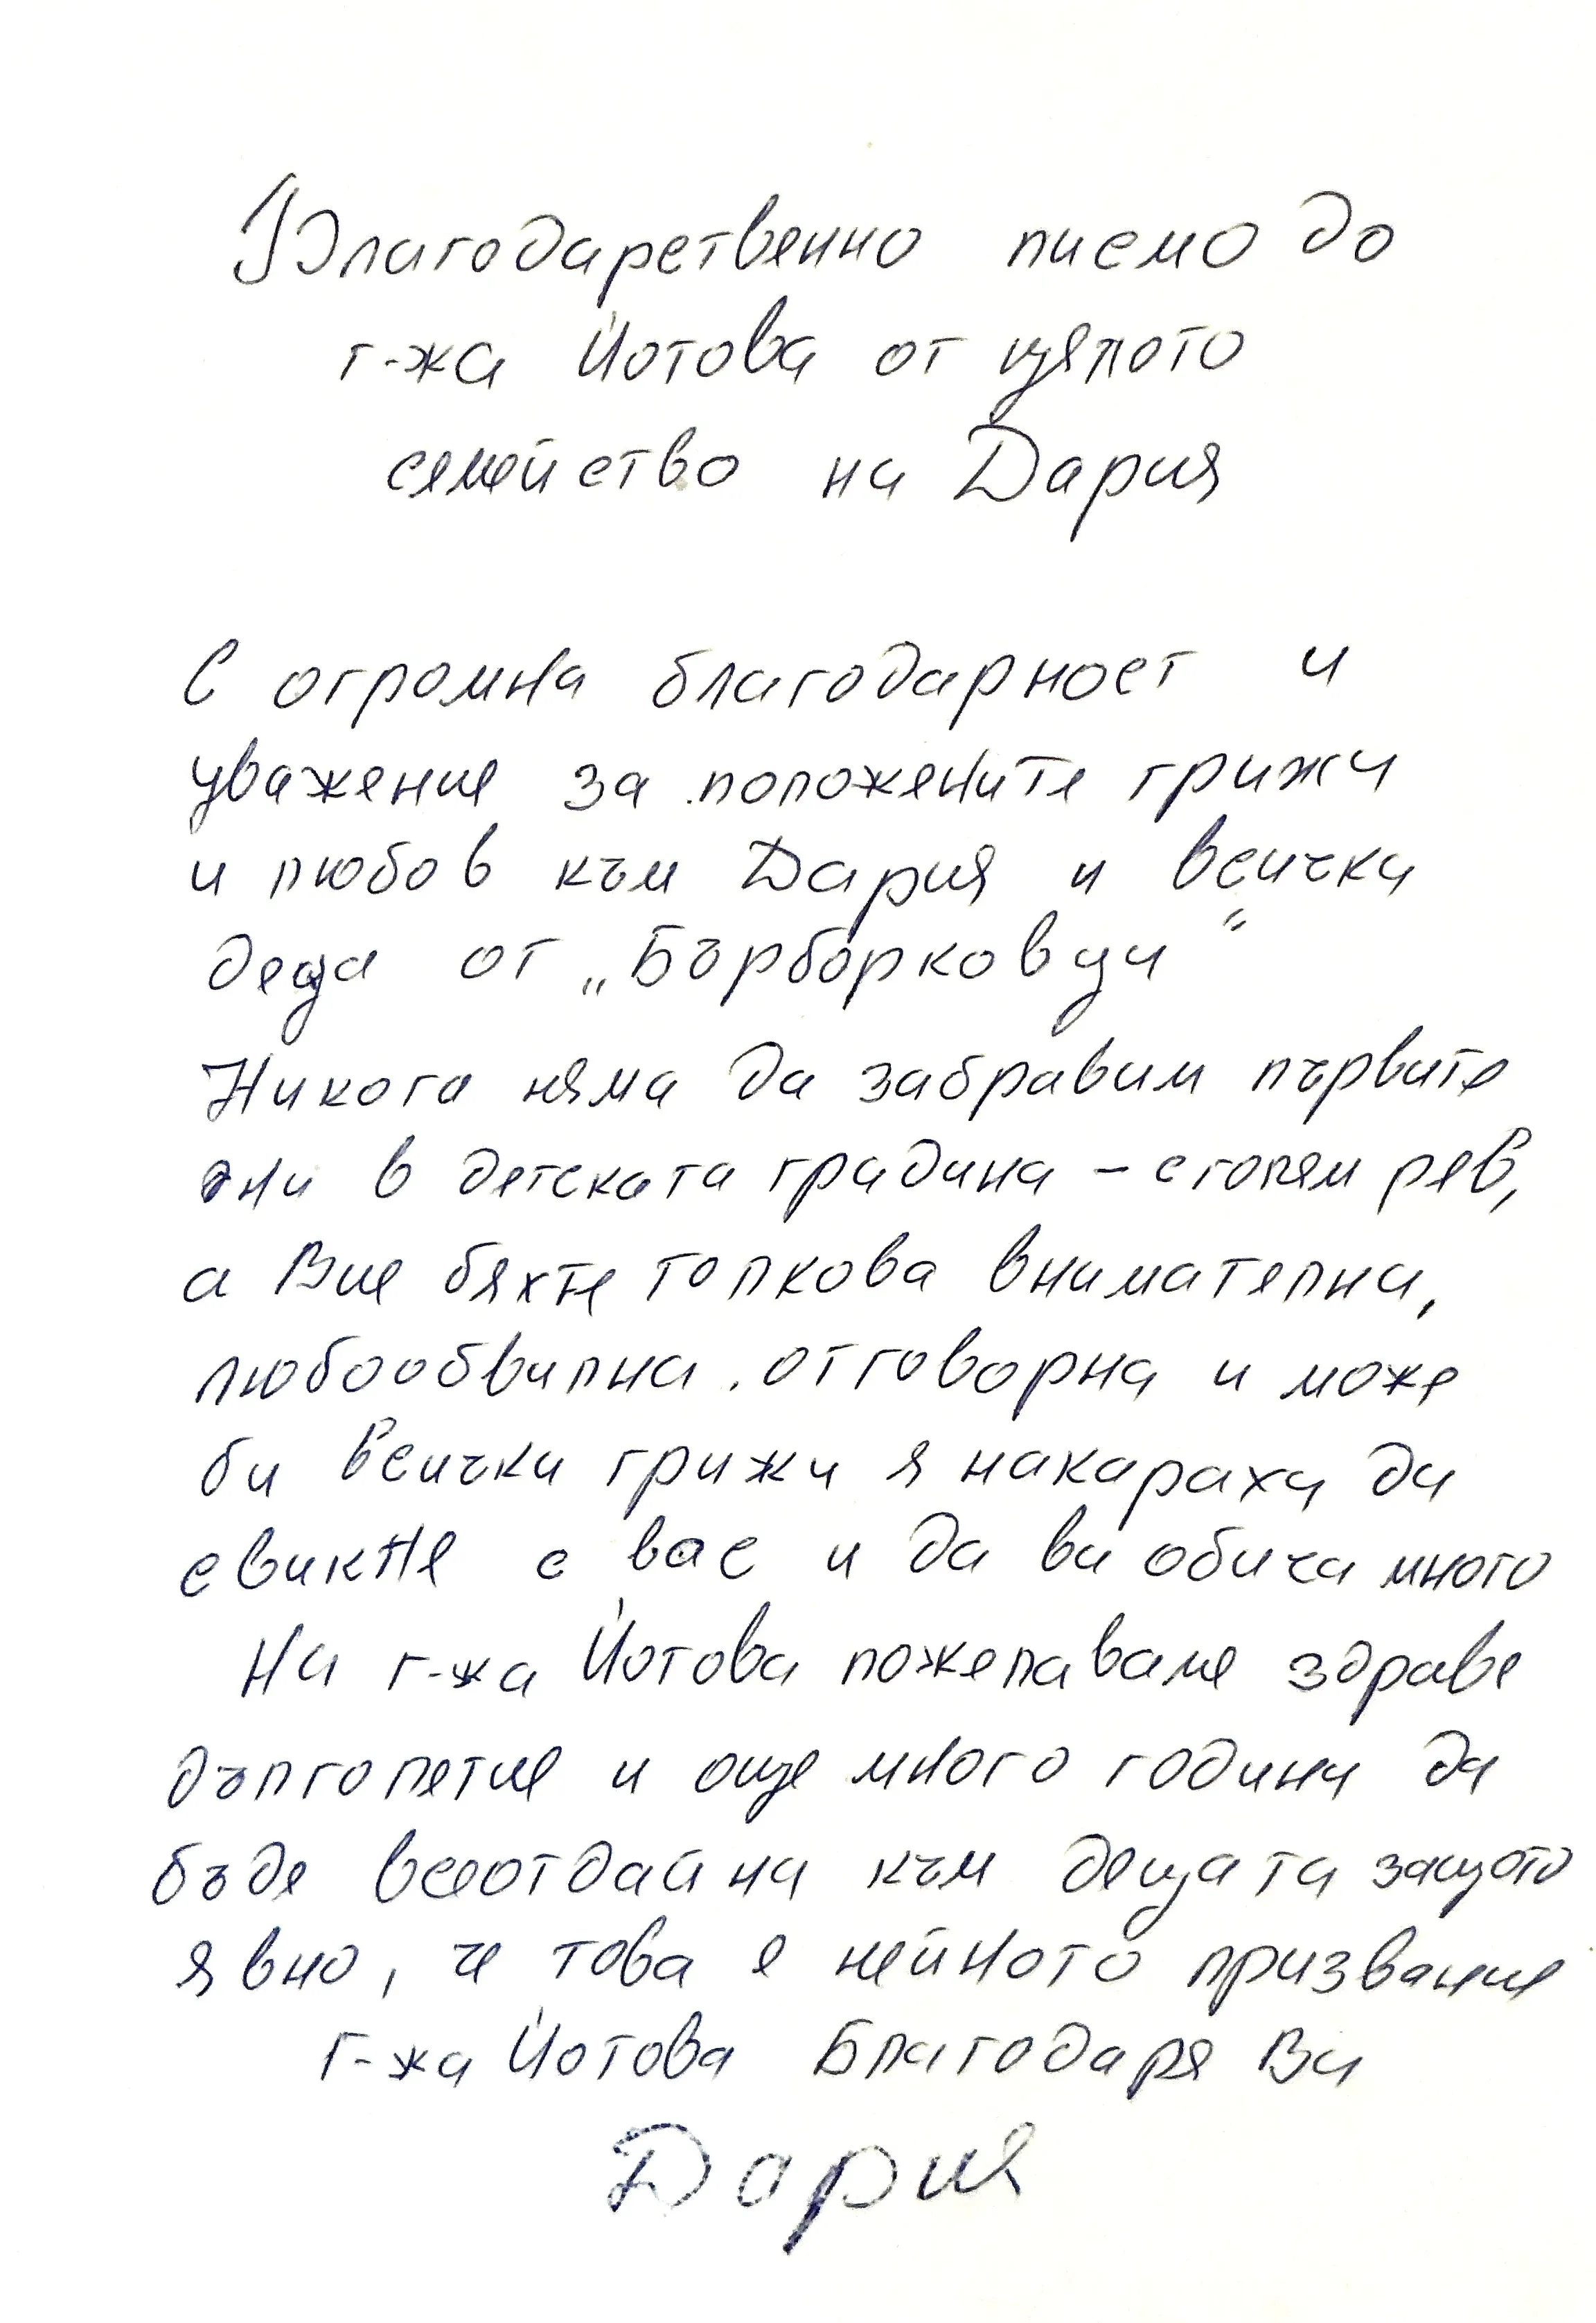 Благодарствено писмо до
г-жа Йотова от цялото
семейство на Дария
С огромна благодарност и
уважение за положените грижи
и любов към Дария и всички
деца от „Бърборковци“
Никога няма да забравим първите
дни в детската градина – с голям рев,
а Вие бяхте толкова внимателна,
любообвилна, отговорна и може
би всички грижи я накараха да
свикне с вас и да ви обича много
На г-жа Йотова пожелаваме здраве
дълголетие и още много години да
бъде всеотдайна към децата защото
явно, че това е нейното призвание
Г-жа Йотова Благодаря Ви
Дария